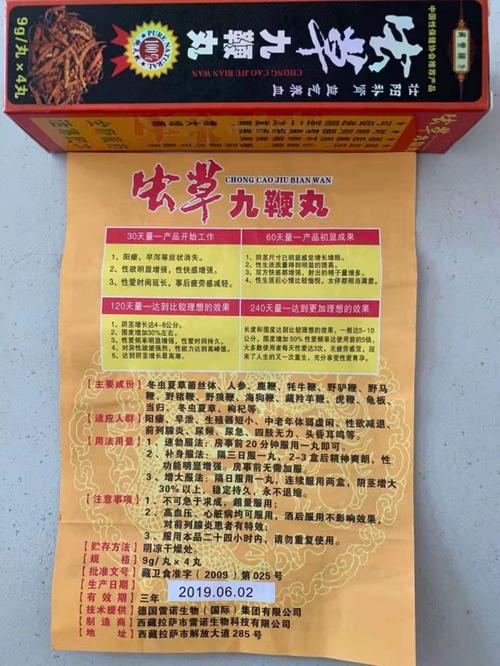 中国性保健协会推荐产品
虫草九鞭丸
CHONG CAO JIU BIAN WAN
壮阳补肾 益气养血
PURE NATURAL
100%
9g/丸×4丸
虫草九鞭丸
CHONG CAO JIU BIAN WAN
虫草九鞭丸
30天量—产品开始工作
1、阳痿、早泻等症状消失。
2、性欲明显增强，性快感增强。
3、性爱时间延长，事后疲劳感减轻。
60天量—产品初显成果
1、阴茎尺寸已明显感觉增长增粗。
2、性生活质量得到明显的提高。
3、双方快感都增强，射出的精子量增多。
4、性生活后心情比较愉悦，女伴都相当满意。
120天量—达到比较理想的效果
1、阴茎增长达4-8公分。
2、围度增加30%左右。
3、性爱频率明显增强，性爱时间持久。
4、对异性欲望强烈，性能力达到高峰值。
5、达到阴茎增长最高潮。
240天量—达到更加理想的效果
长度和围度达到比较理想的效果，一般达5-10
公分，围度增加50%性爱频率达使用前的5倍，
大多数使用者每天性爱达3次，无疲劳感觉，迎
来了人生的又一次重生，充分享受性爱育孕。
【主要成份】冬虫夏草菌丝体、人参、鹿鞭、牦牛鞭、野驴鞭、野马
鞭、野猪鞭、野狼鞭、海狗鞭、藏羚羊鞭、虎鞭、龟板、
当归、冬虫夏草、枸杞等。
【适应人群】阳痿、早泄、生殖器短小、中老年体弱虚闲、性欲减退、
前列腺炎、尿频、尿急、四肢无力、头昏耳鸣等。
【用法用量】1、速勃服法：房事前20分钟服用一丸即可。
2、补身服法：隔三日服一丸，2-3盒后精神爽朗，性
功能明显增强。房事前无需加服。
3、增大服法：隔日服用一丸，连续服用两盒，阴茎增大
30%以上，稳定持久，永不退缩。
【注意事项】1、不可急于求成，超量服用；
2、高血压、心脏病均可服用，酒后服用不影响效果，
对前列腺炎患者有特效；
3、服用本品二十四小时内，请勿重复使用。
【贮存方法】阴凉干燥处。
【规 格】9g/丸×4丸
【批准文号】藏卫食准字（2009）第025号
【生产日期】2019.06.02
【有 效 期】三年
【技术提供】德国雷诺生物（国际）集团有限公司
【制 造 商】西藏拉萨市雷诺生物科技有限公司
【地 址】西藏拉萨市解放大道285号